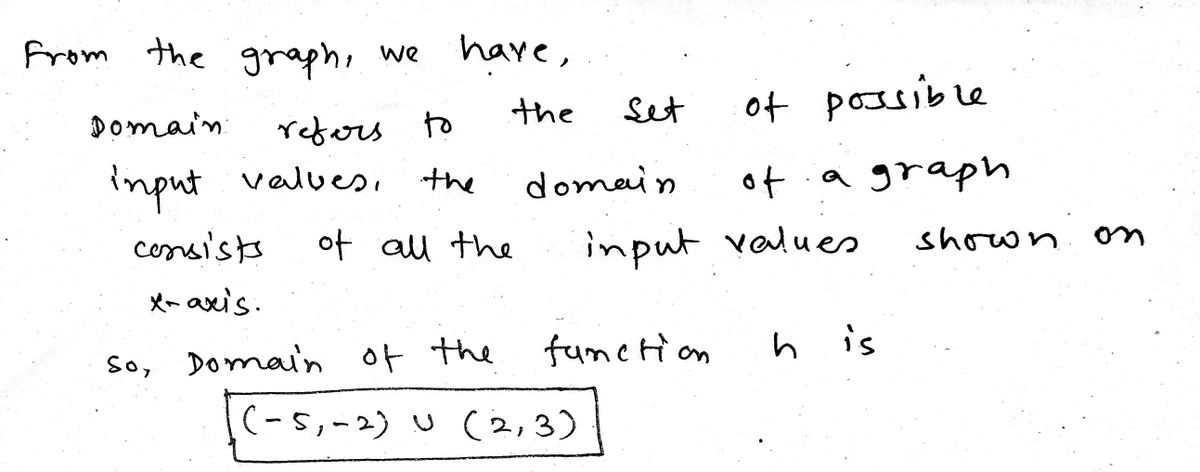 From the graph, we have,
Domain refers to the set of possible
input values, the domain of a graph
consists of all the input values shown on
x-axis.
So, Domain of the function h is
(-5,-2) ∪ (2,3)